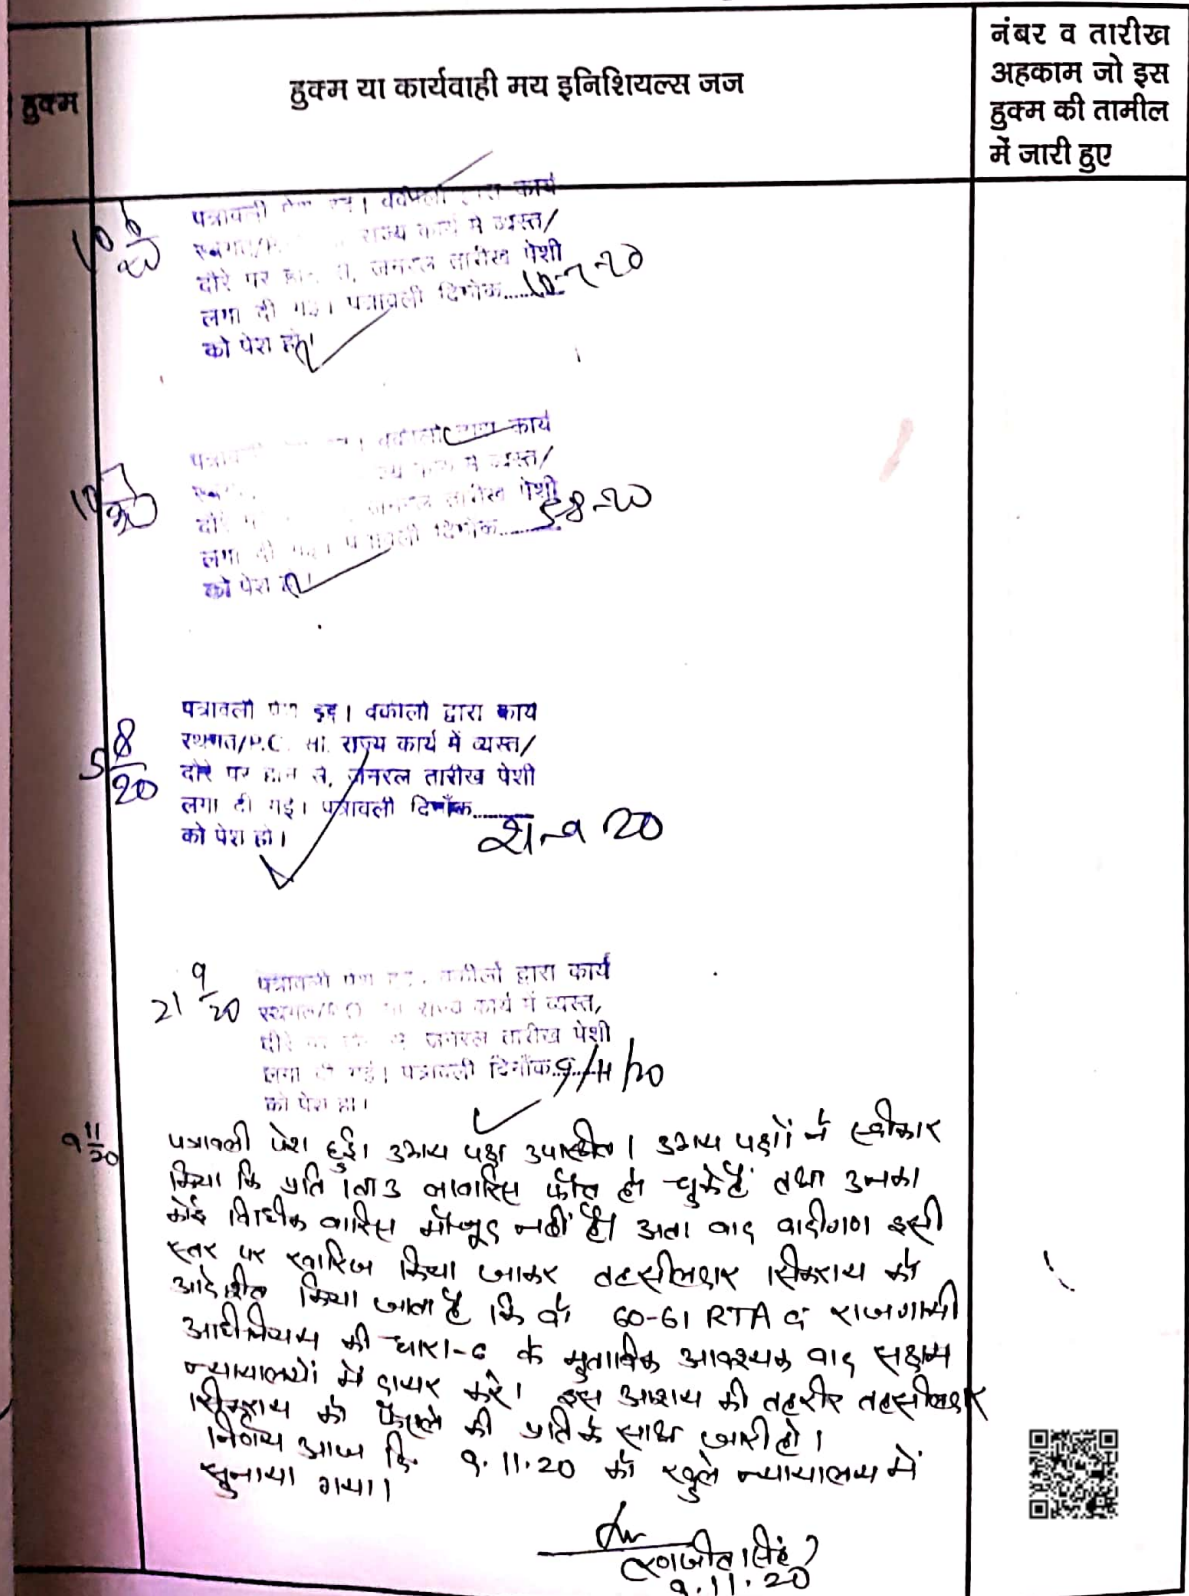 हुक्म
हुक्म या कार्यवाही मय इनिशियल्स जज
नंबर व तारीख
अहकाम जो इस
हुक्म की तामील
में जारी हुए
10 6/20
पत्रावली कार्य
राज्य कार्य में व्यस्त/
दौरे पर जनरल तारीख पेशी
लगा दी गई। पत्रावली दिनाँक........10-7-20
को पेश हो।
10 7/20
वकीलों द्वारा कार्य
में व्यस्त/
जनरल तारीख पेशी
लगा दी गई। पत्रावली दिनाँक........5-8-20
को पेश
5 8/20
पत्रावली पेश हुई। वकीलों द्वारा कार्य
स्थगित/P.O. सा. राज्य कार्य में व्यस्त/
दौरे पर होने से, जनरल तारीख पेशी
लगा दी गई। पत्रावली दिनाँक........
को पेश हो। 21-9 20
21 9/20
पत्रावली पेश वकीलों द्वारा कार्य
राज्य कार्य में व्यस्त,
जनरल तारीख पेशी
लगा दी गई। पत्रावली दिनाँक..9/11/20
को पेश हो।
9 11/20
पत्रावली पेश हुई। उभय पक्ष उपस्थित। उभय पक्षों ने स्वीकार
किया कि प्रति लावारिस फौत हो चुके हैं तथा उनका
कोई विधिक वारिस मौजूद नहीं है। अतः वाद वादीगण इसी
स्तर पर खारिज किया जाकर तहसीलदार सिकराय को
आदेशित किया जाता है कि वो 60-61 RTA व राजगामी
अधिनियम की धारा-6 के मुताबिक आवश्यक वाद सक्षम
न्यायालयों में दायर करे। इस आशय की तहरीर तहसीलदार
सिकराय को फैसले की प्रति के साथ जारी हो।
निर्णय आज दि. 9.11.20 को खुले न्यायालय में
सुनाया गया।
9.11.20